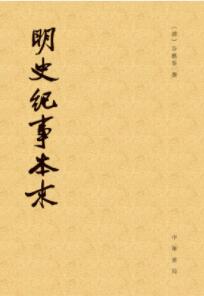 （清）谷應泰 撰
明史纪事本末
中华書局